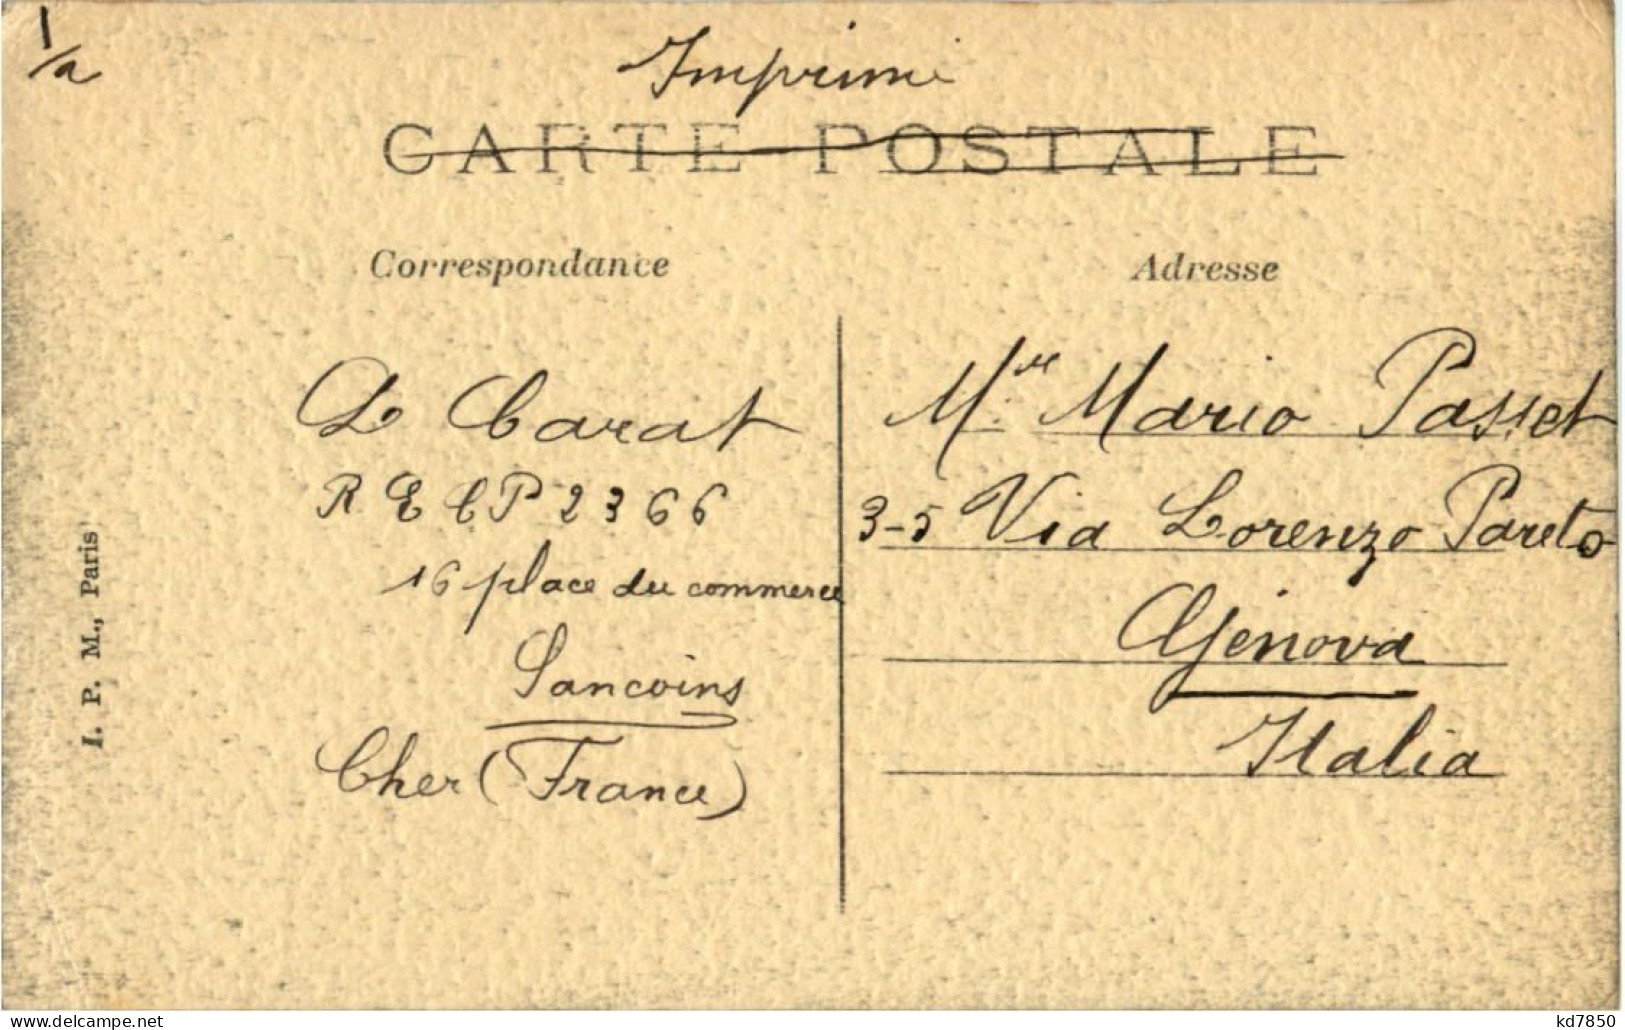 1/a
Imprimé
CARTE POSTALE
Correspondance
Adresse
L Carat
R E C P 2366
16 place du commerce
Sancoins
Cher (France)
Mr Mario Passet
3-5 Via Lorenzo Pareto
Genova
Italia
I. P. M., Paris
kd7850